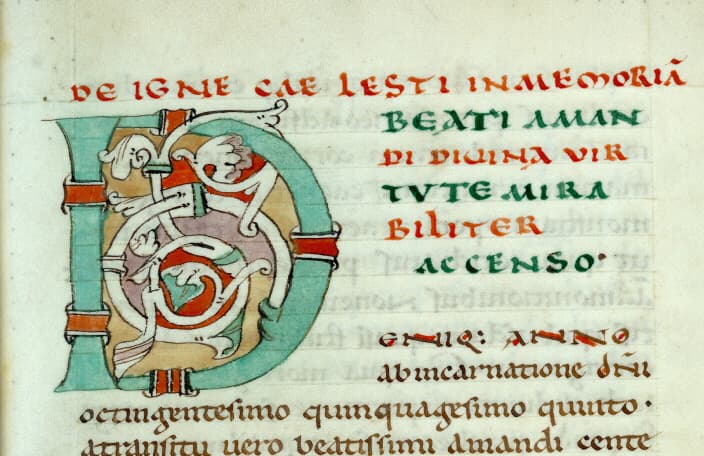 DE IGNE CAELESTI IN MEMORIĀ
BEATI AMAN
DI DIVINA VIR
TUTE MIRA
BILITER
ACCENSO·
D ENIQ: ANNO
ab incarnatione dn̄i
octingentesimo quinquagesimo quinto·
a transitu uero beatissimi amandi cente